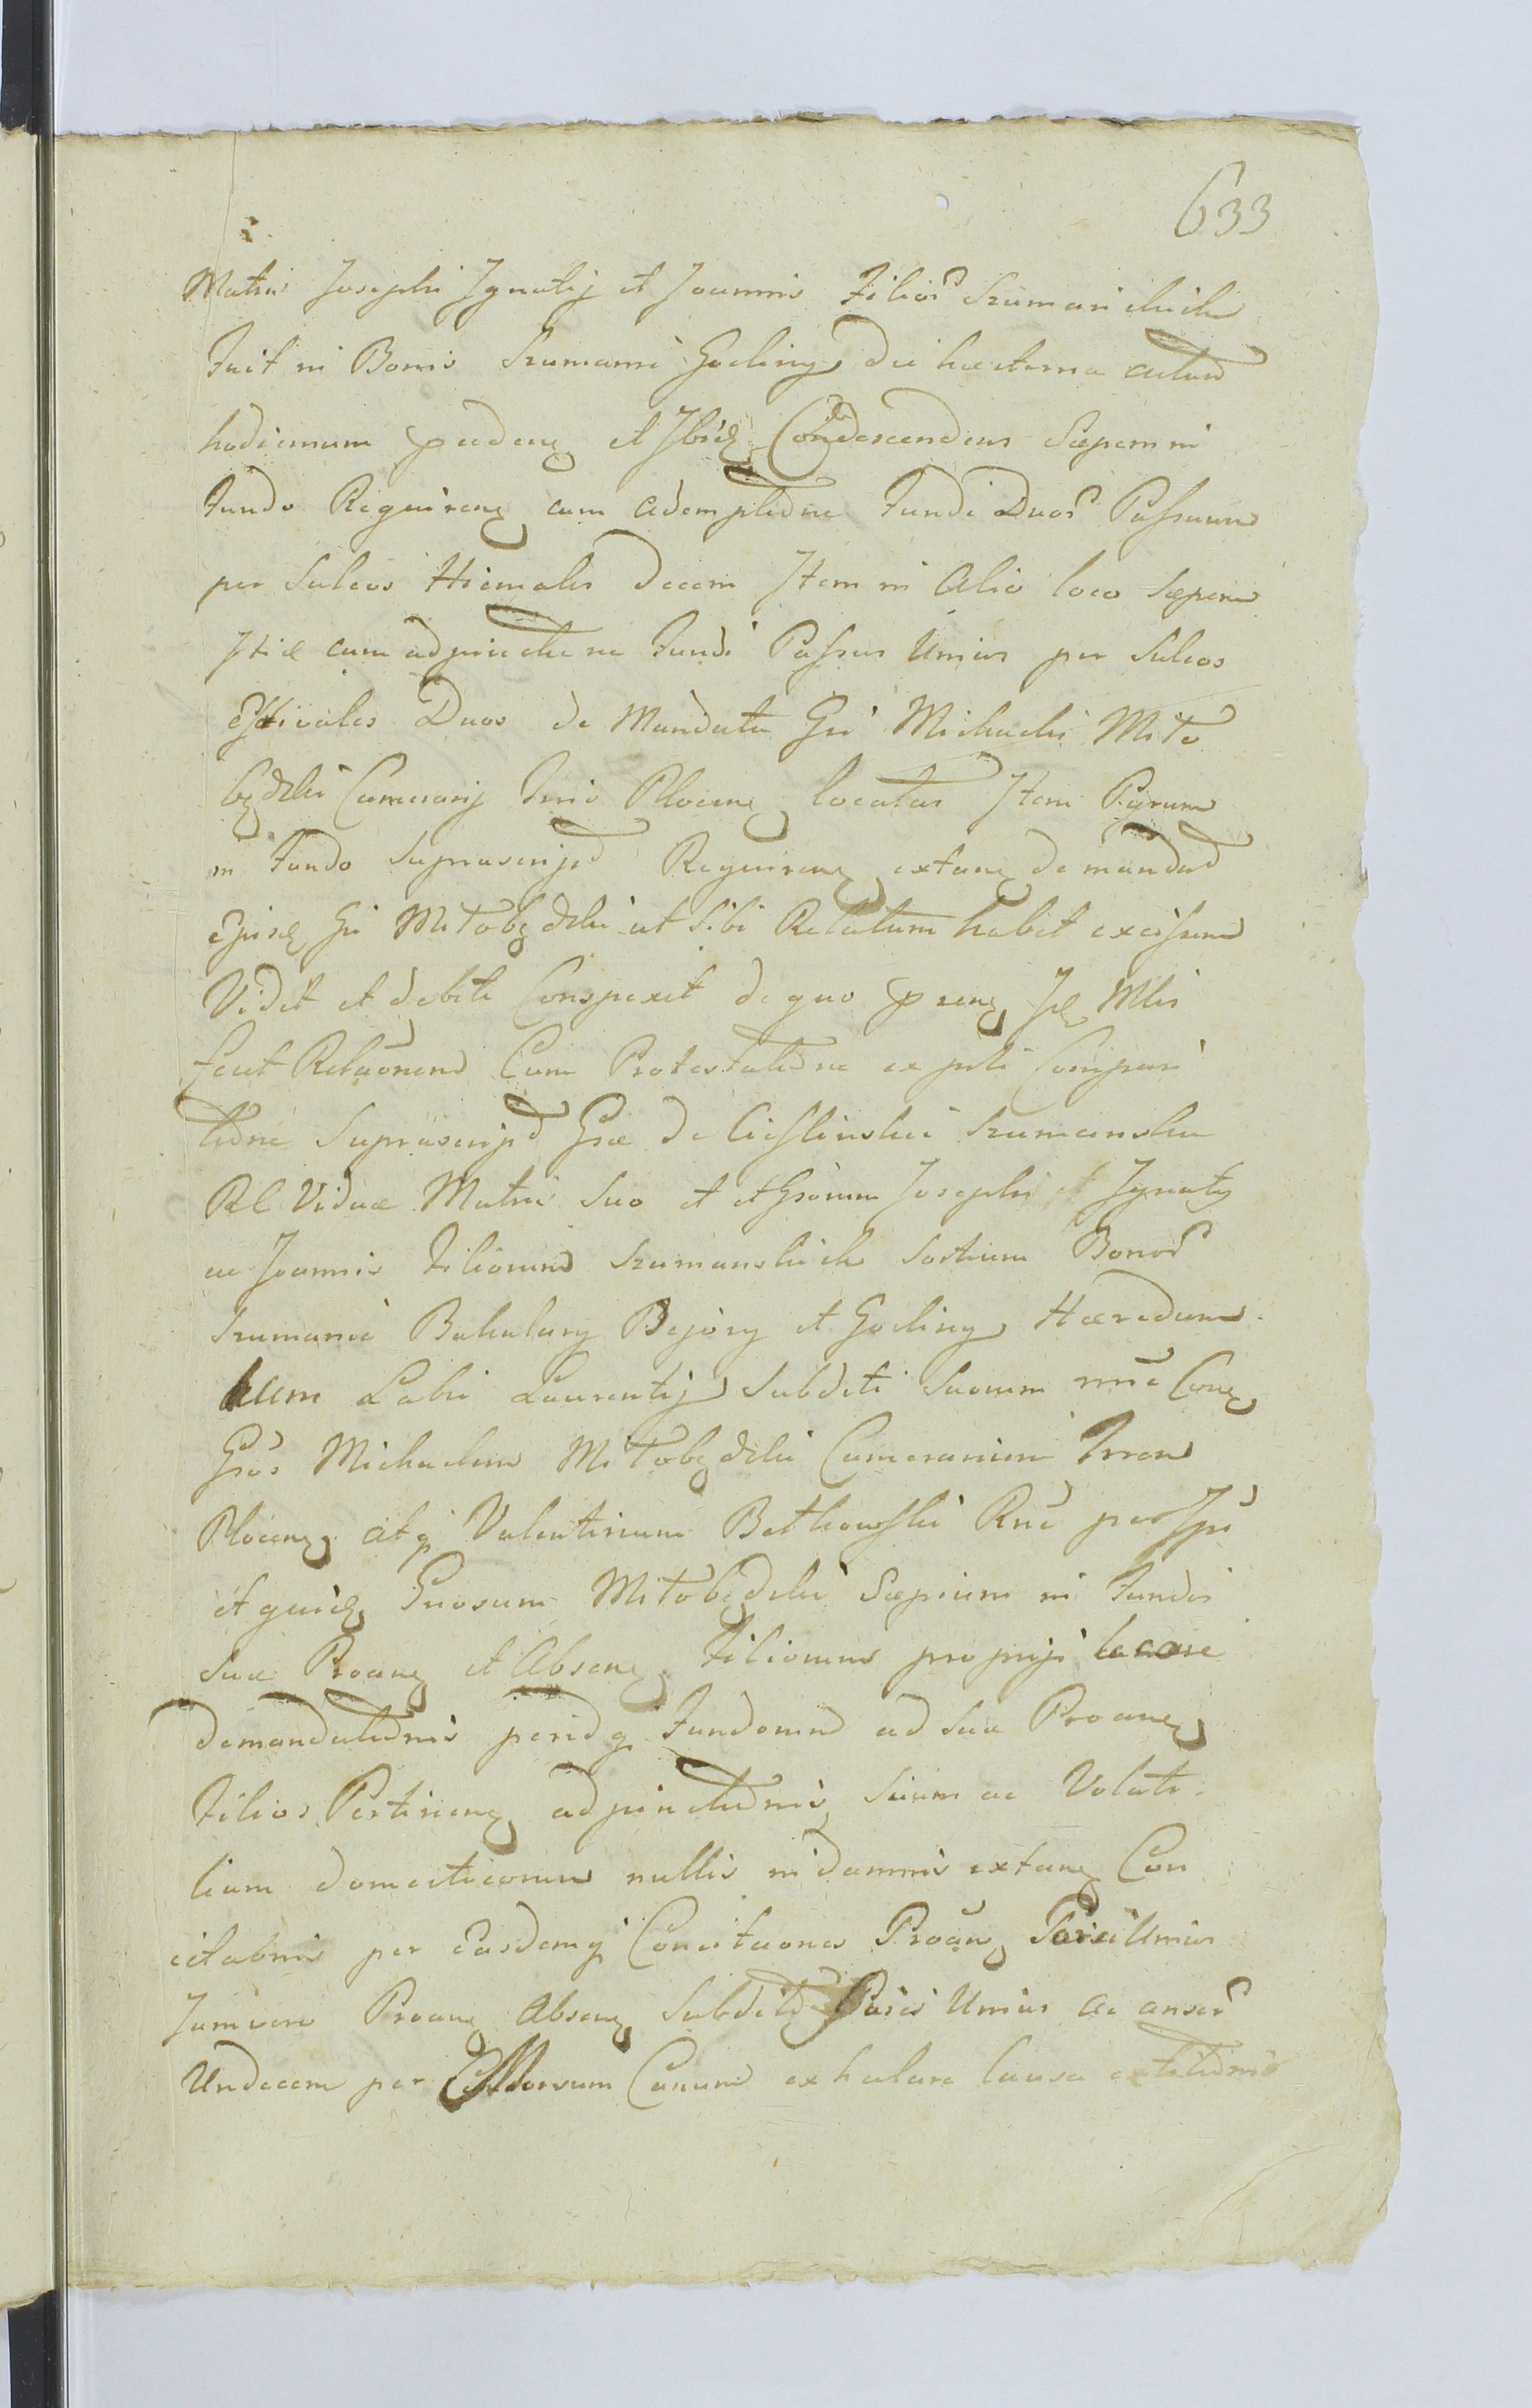 633
Matris Josephi Ignatij et Joannis Filior Szumanskich
Fuit in Bonis Szumanie Gocliny die hesterna actum
hodiernum praeceden et Ibid Condescendens Saepem in
Fundo Requiren cum ademptione Fundi Duor Passuum
per Sulcos Hiemales decem Item in alio loco Saepem
cum adjunctione Fundi Passus Unius per Sulcos
Estivales Duos de Mandato Gsi Michaelis Miło
będzki Camerarij Trris Plocen locatas Item Pyrum
in Fundo Suprascript Requiren extan de mandato
ejusd Gsi Miłobędzki ut sibi Relatum habet excisam
Vidit et debite Conspexit de quo pren Id Mlis
fecit Relaonem Cum Protestatione ex parte Compari
tione Suprascript Gsae de Cieslinskie Szumanska
Rel Viduae Matris suo et Gsorum Josephi et Ignatij
ac Joannis Filiorum Szumanskich Sortium Bonor
Szumanie Bakalary Pejory et Gocliny Haeredum
Laurentij Subditi Suorum nne Con
Gsos Michaelem Miłobędzki Camerarium Trren
Plocen atq Valentinum Betkowski
et quid Gnosum Miłobędzki Saepium in Fundis
Suae Proan et Absen Filiorum proprijs locare
demandationis peridq Fundorum ad Suae Proan
Filios Pertinen adjunctionis Suum ac Volati
lium domesticorum nullis in damnis extan Con
citaonis per easdemq Concitaones Proan Porci Unius
Jamvero Proan Absen Subditi Porci Unius ac anser
Undecem per Morsum Canum exhalare causa